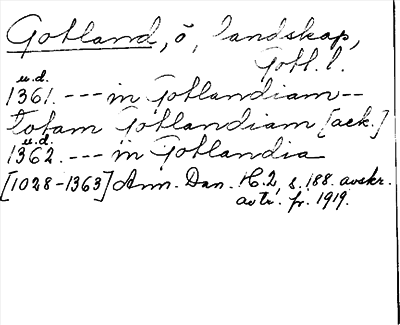 Gotland, ö, landskap,
Gotl. l.
u.d.
1361. --- in Gotlandiam --
totam Gotlandiam [ack.]
u.d.
1362. --- in Gotlandia
[1028-1363] Ann. Dan. H.2, s. 188. avskr.
av tr. fr. 1919.